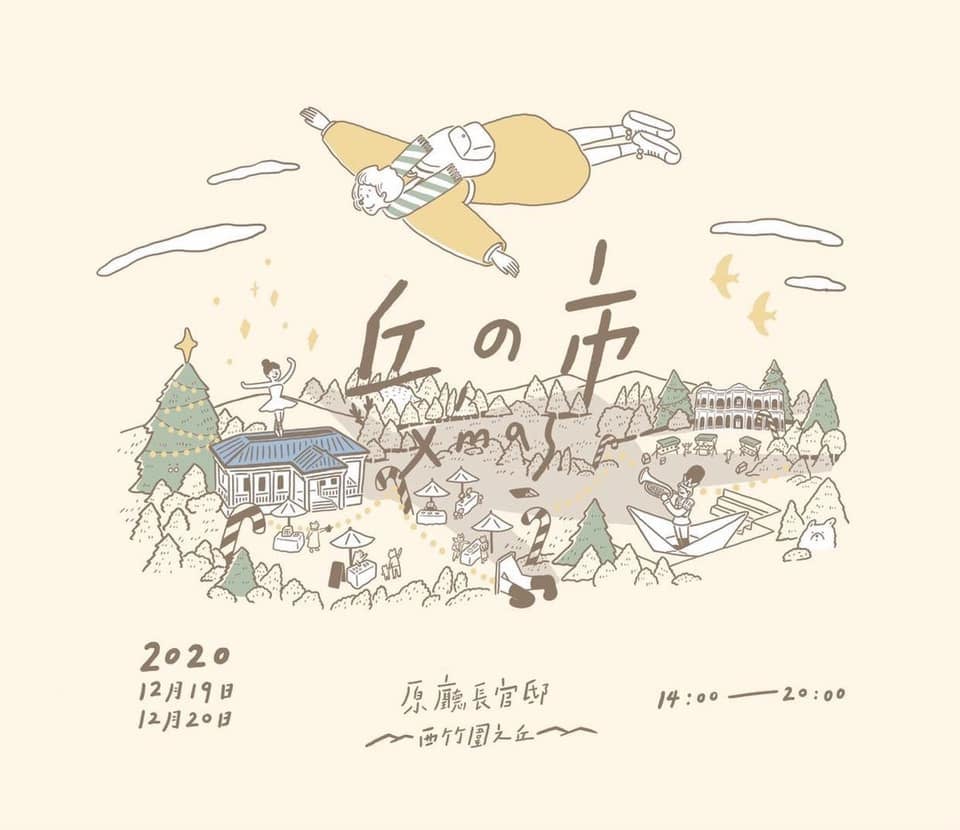 丘の市
xmas
2020
12月19日
12月20日
原廳長官邸
西竹圍之丘
14:00 — 20:00